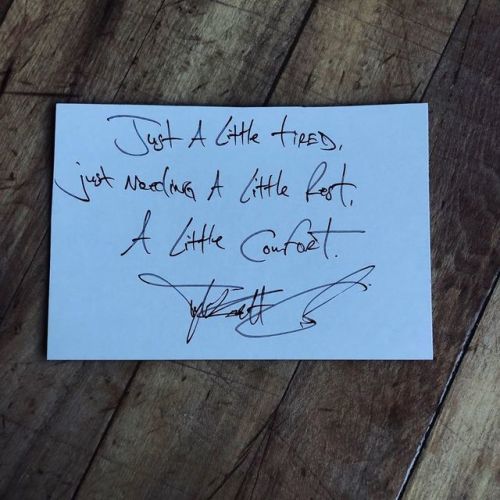 Just A Little tired,
just Needing A Little Rest,
A Little Comfort.